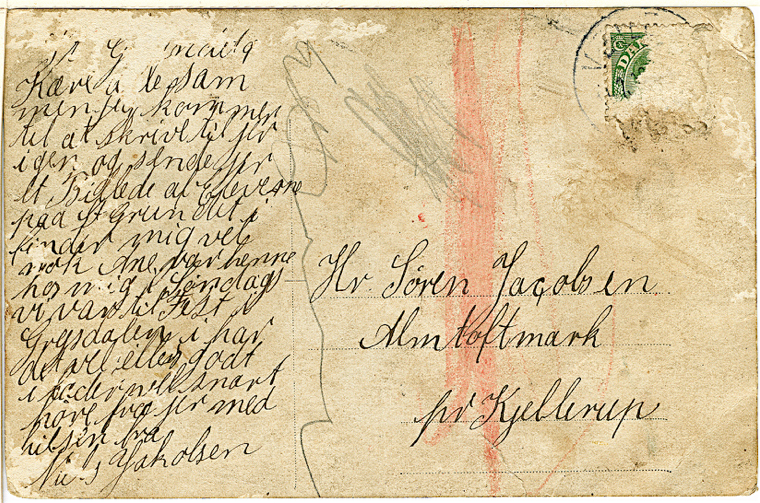 Kære
men jeg kommer
til at skrive til jer
igen og sende jer
et Billede af Eleverne
paa
kinder mig vel
nok Ane var henne
hos mig i Søndags
vi var til Fest i
Grejsdalen i har
det vel ellers godt
i snart
høre fra jer med
hilsen fra
Niels Jakobsen
DAN
Hr Søren Jacobsen
Almtoftmark
pr Kjellerup